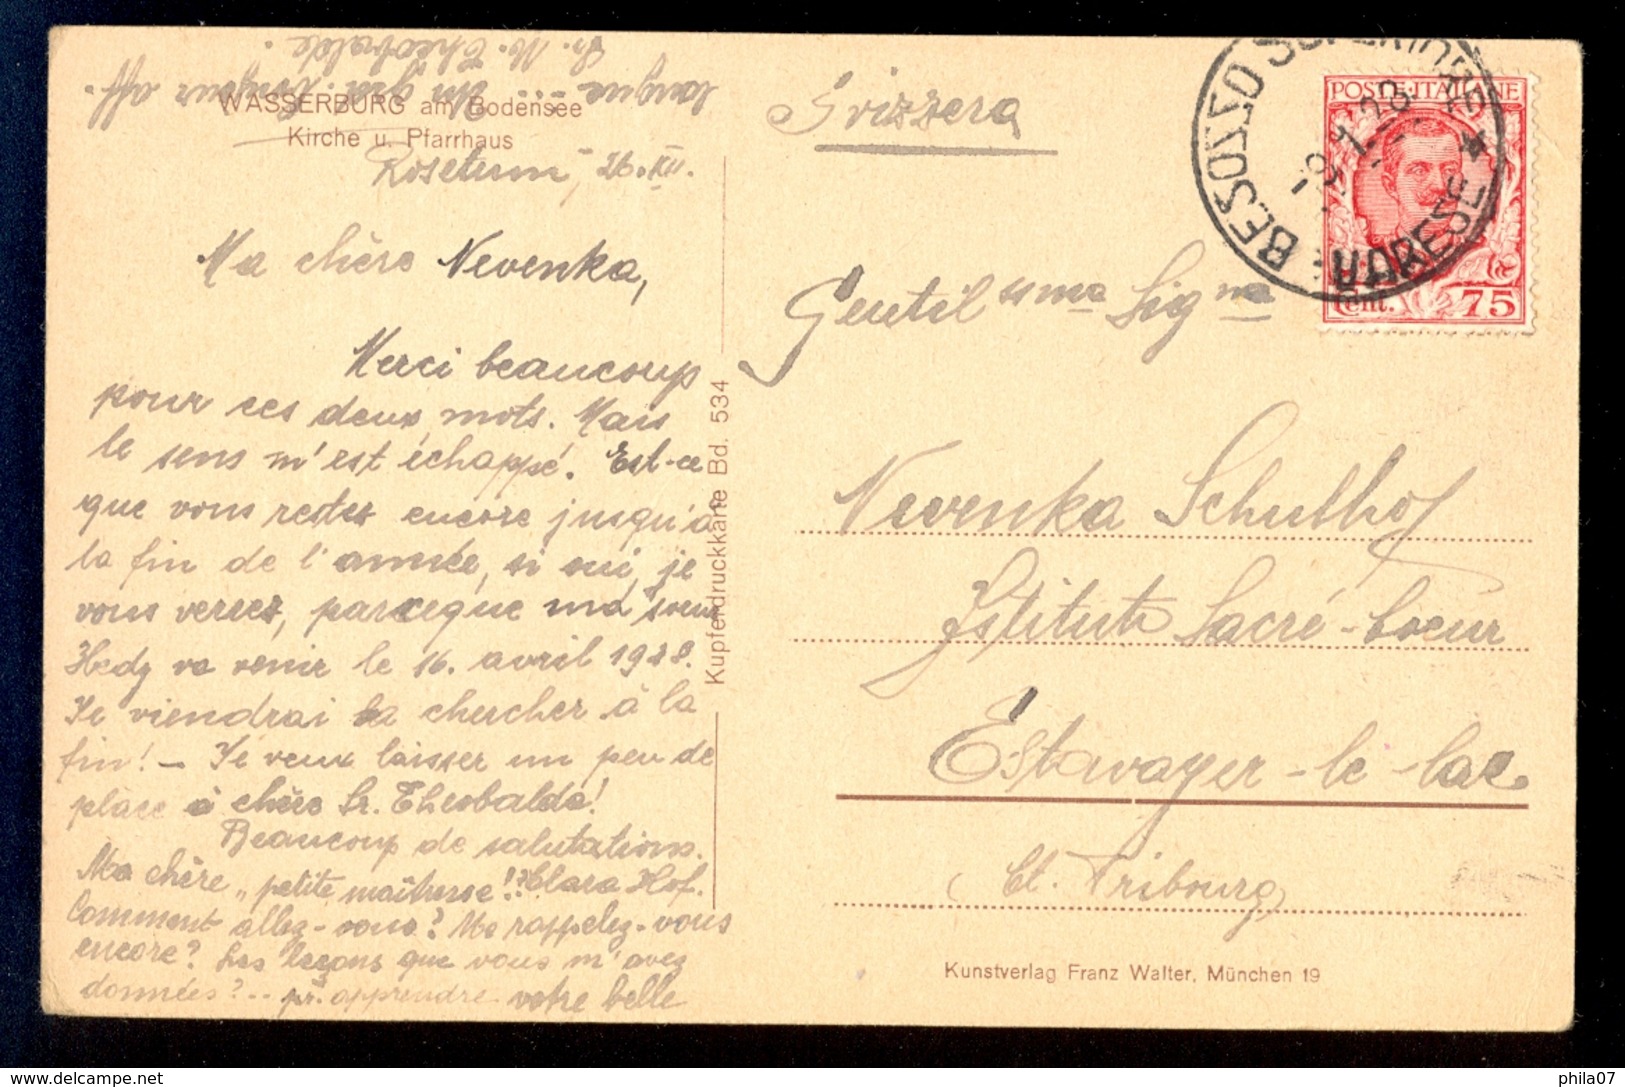 WASSERBURG am Bodensee
Kirche u. Pfarrhaus
Rosetum, 26. XII.
Ma chère Nevenka,
Merci beaucoup
pour ces deux mots. Mais
le sens m'est échappé. Est-ce
que vous restez encore jusqu'à
la fin de l'année, si oui, je
vous verrez, parceque ma sœur
Hedy va venir le 16. avril 1928.
Je viendrai la chercher à la
fin! – Je veux laisser un peu de
place à chère Sr. Theobalde!
Beaucoup de salutations.
Clara Hof.
Ma chère „petite maîtresse"!?
Comment allez-vous? Me rappelez-vous
encore? Les leçons que vous m'avez
données? -- pr. apprendre votre belle
langue .... Un grd. bonjour aff.
Sr. M. Theobalde.
Kupferdruckkarte Bd. 534
Svizzera
BESOZZO SUPERIORE
* VARESE *
POSTE·ITALIANE
Cent. 75
Gentilissima Signa
Nevenka Schulhof
Istituto Sacré-Coeur
Estavayer-le-lac
(Ct. Fribourg)
Kunstverlag Franz Walter, München 19
phila07
delcampe.net